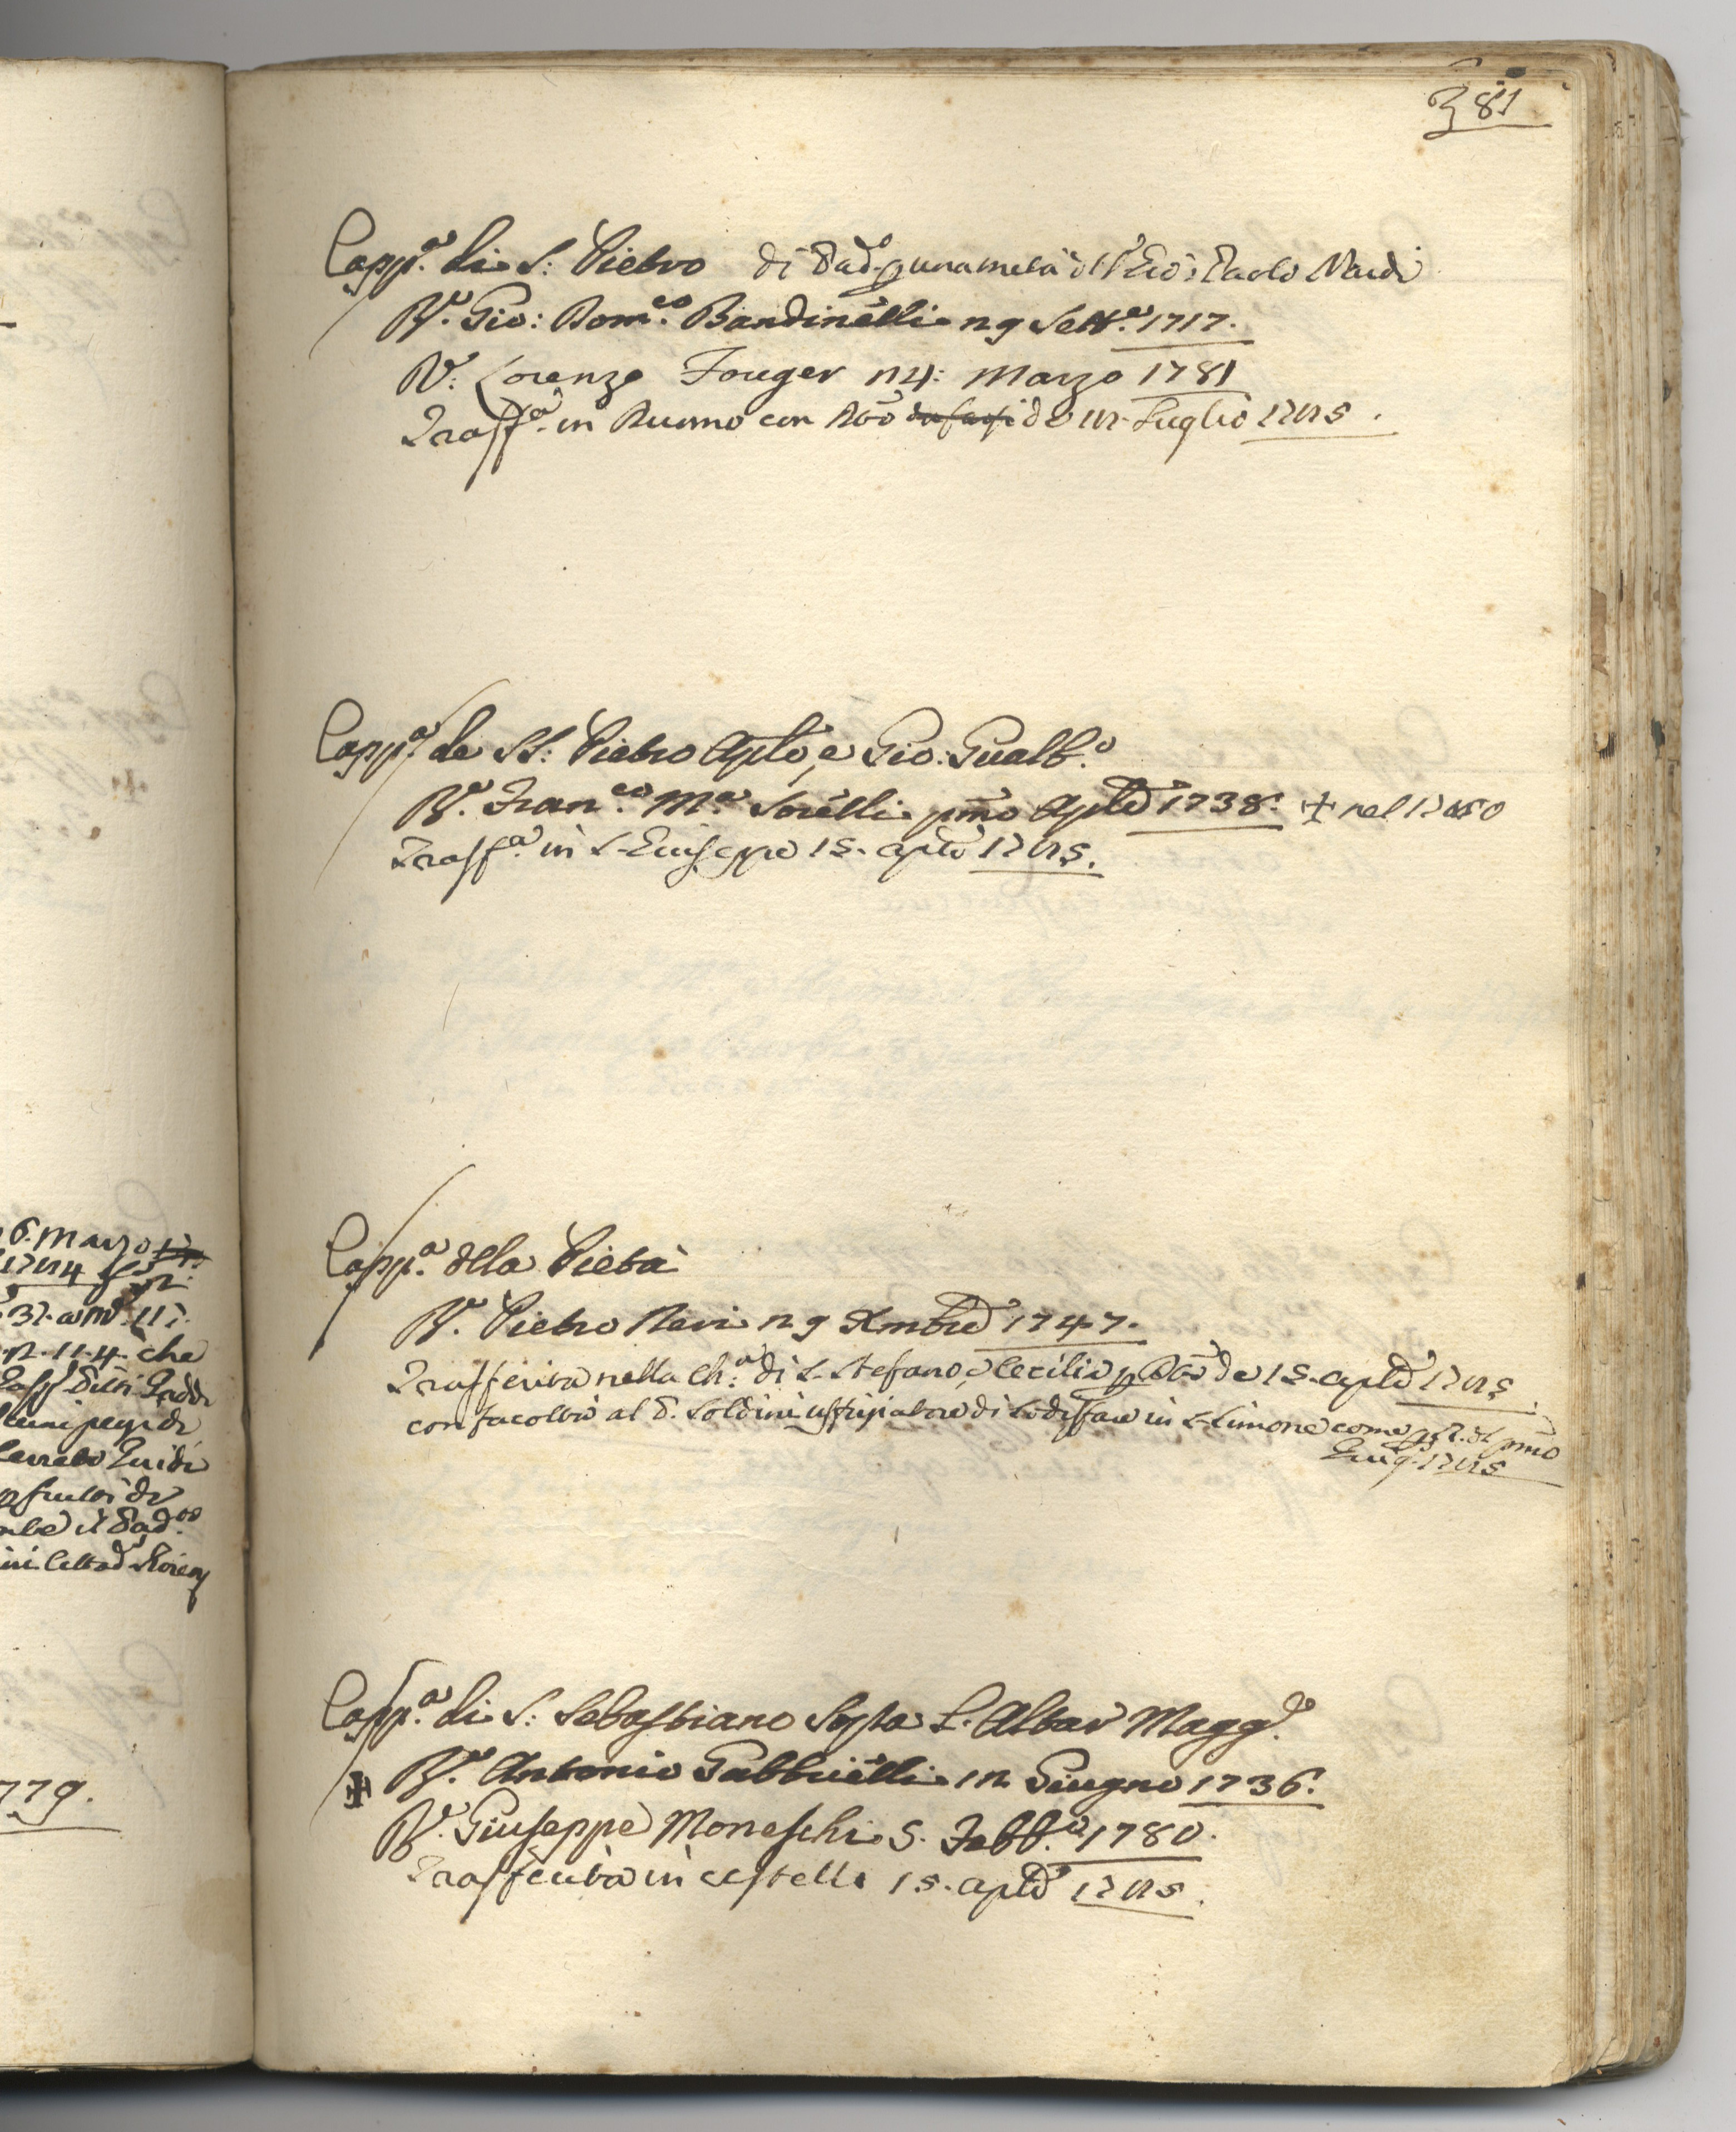 381
Capp.a di S: Pietro di Pad. p una metà d Gio: Paolo Nardi
R.e Gio: Dom.co Bandinelli 29 Sett.e 1717.
R: Lorenzo Fouger 24: Marzo 1781
Trasf.a in Duomo con Dto de Luglio 1785.
Capp.a de SS: Pietro Aplo, e Gio: Gualb.o
R.e Fran.co M.a Sorelli pmo Aple 1738. + nel 17
Trasf.a in S. Giuseppe 15. aple 1785.
Capp.a della Pietà
R.e Pietro Neri 29 Xmbre 1747.
Trasferita nella Ch.a di S. Stefano, e Cecilia p Dto de 15. aple 1785
con facoltà al S. Soldini uffiziatore di sodisfare in S. Simone come p R. d pmo
Giug. 1785
Capp.a di S: Sebastiano sopra l'Altar Magg.e
+ R.e Antonio Gabbrielli 12 Giugno 1736.
R.e Giuseppe Moneschi 5. Febb.o 1780.
Trasferita in Cestello 15. aple 1785.
6. Marzo
1784
che
779.